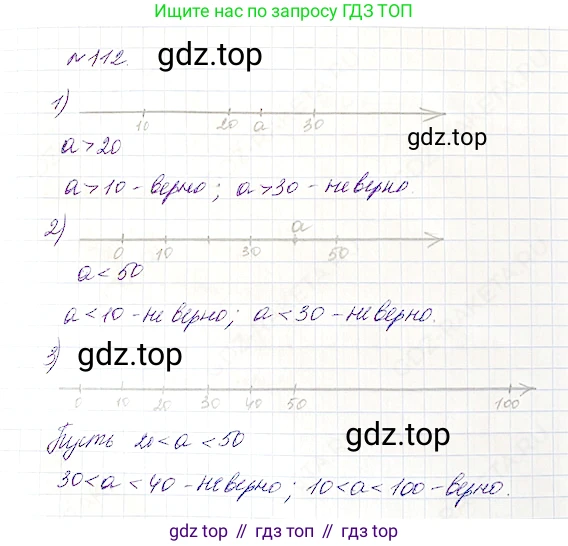 Ищите нас по запросу ГДЗ ТОП
№112.
gdz.top
1)
10 20 a 30
gdz.top
a > 20
a > 10 - верно; a > 30 - неверно
2)
a
0 10 30 50
a < 50
a < 10 - неверно; a < 30 - неверно.
3)
gdz.top
0 10 20 30 40 50 100
Пусть 20 < a < 50
gdz.top
30 < a < 40 - неверно; 10 < a < 100 - верно.
gdz.top // гдз топ // гдз.top